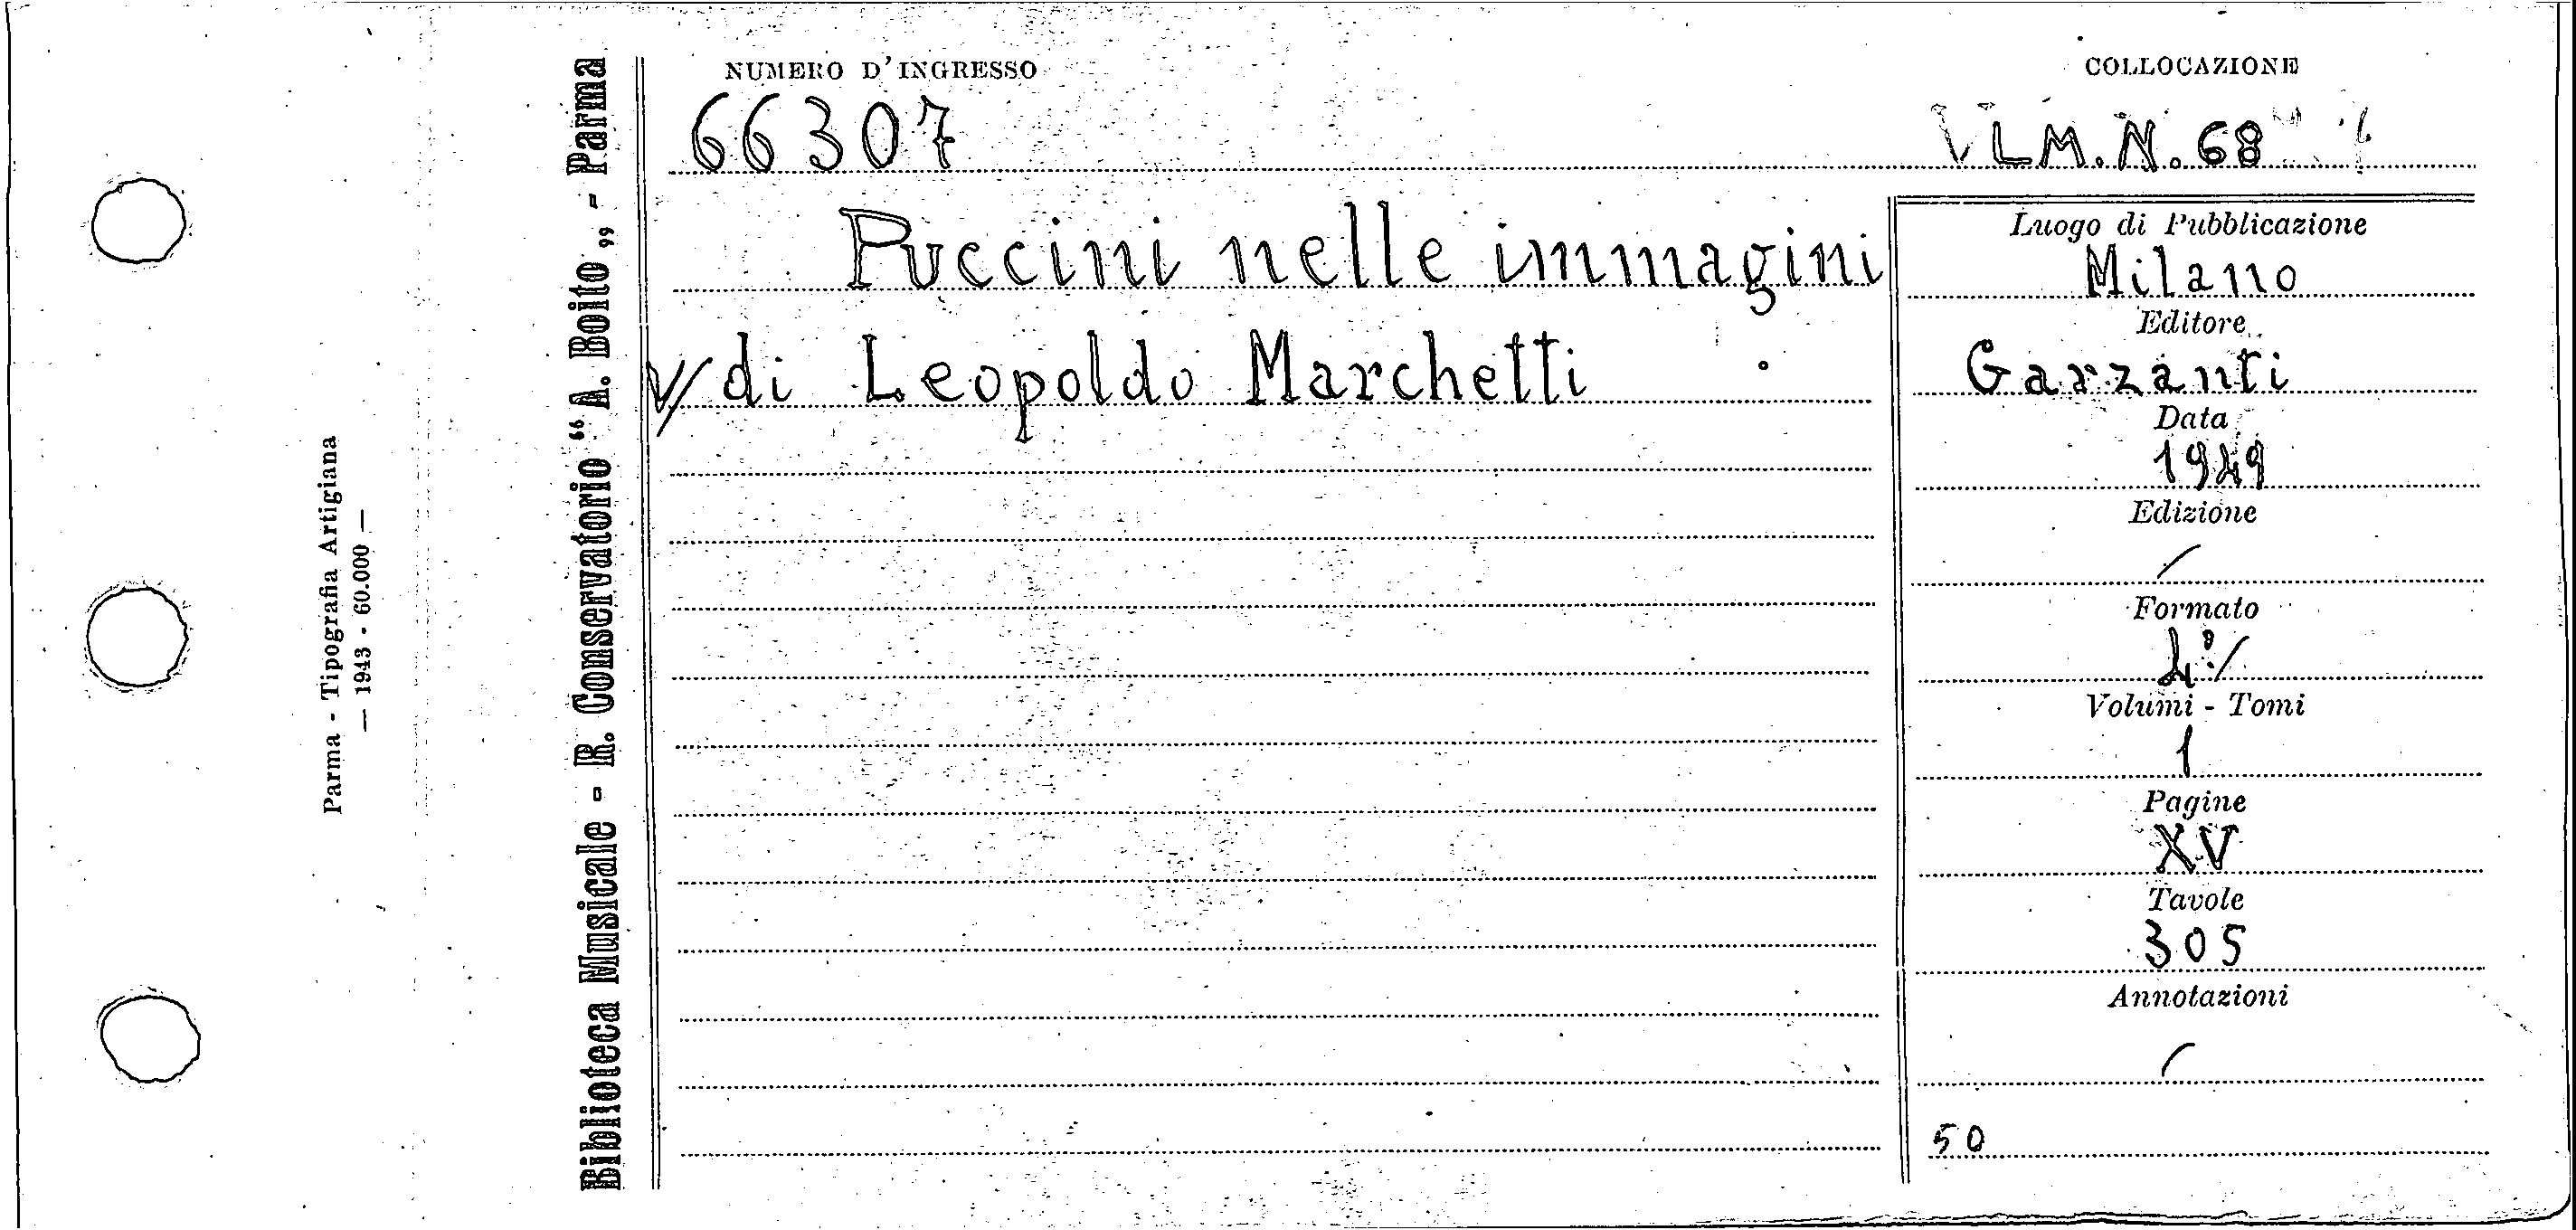 NUMERO D'INGRESSO
66307
COLLOCAZIONE
LM.N.68
Puccini nelle immagini
di Leopoldo Marchetti
Luogo di Pubblicazione
Milano
Editore
Garzanti
Data
1949
Edizione
/
Formato
4°/
Volumi - Tomi
1
Pagine
XV
Tavole
305
Annotazioni
/
50
Biblioteca Musicale - R. Conservatorio “A. Boito„ - Parma
Parma - Tipografia Artigiana
— 1943 - 60.000 —